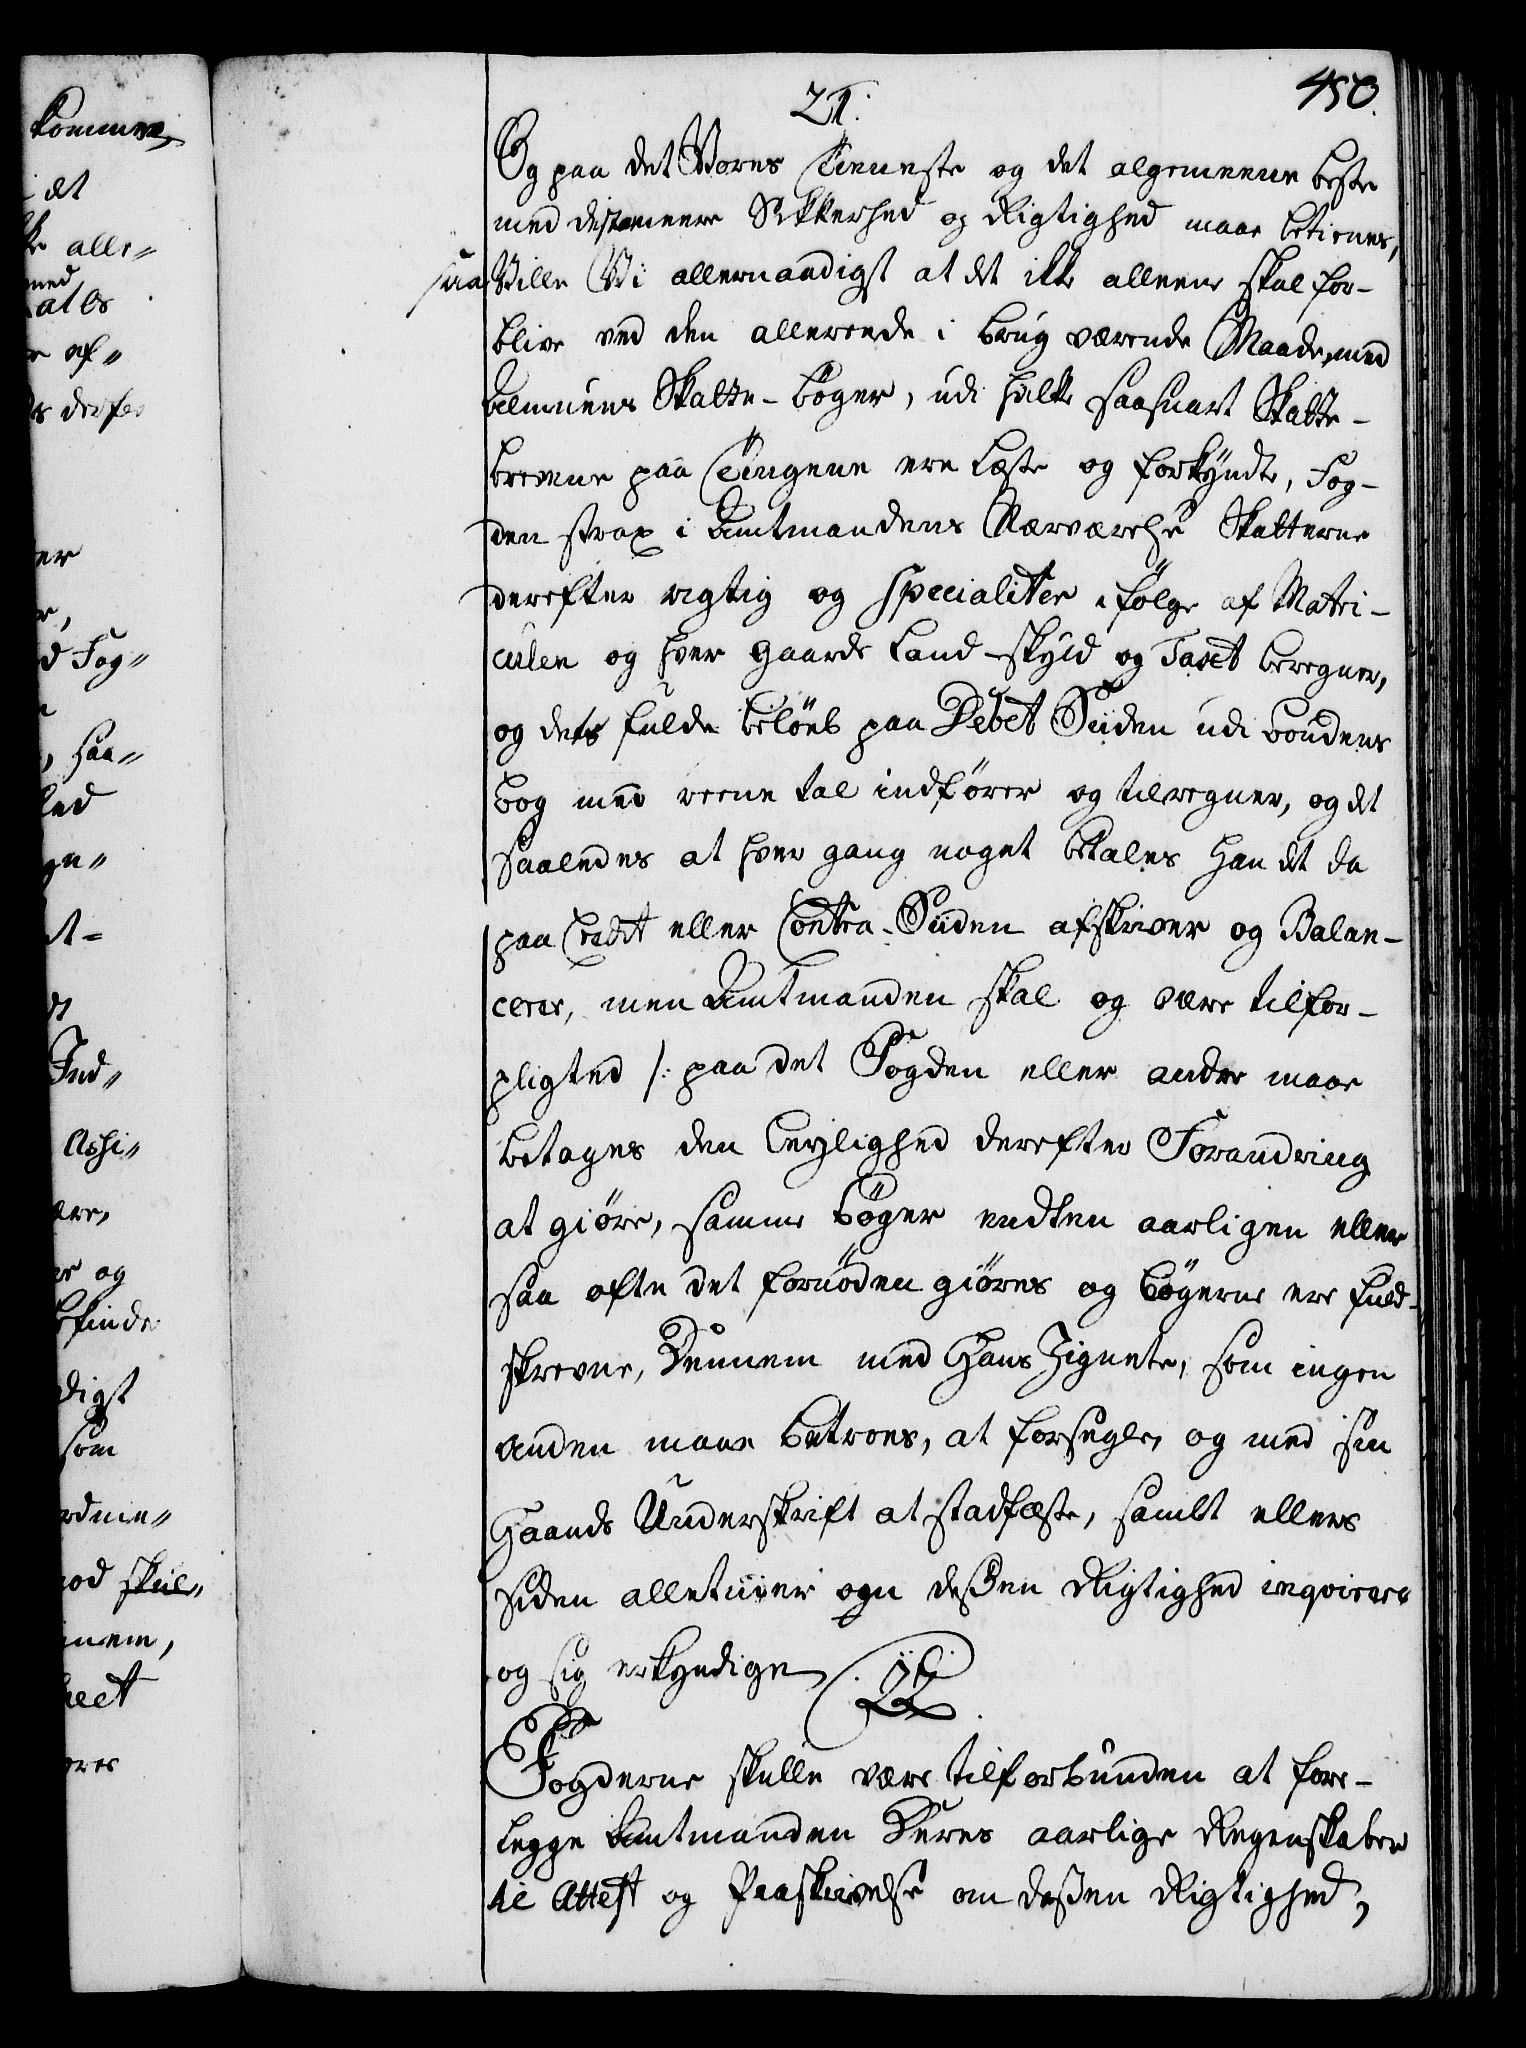 450.
21.
Og paa det Vores Tieneste og det algemeene beste
med distomeere Sikkerhed og Rigtighed maae betienes,
saa Ville Vi allernaadigst at det ikke alleene skal for-
blive ved den allereede i brug værende Maade, med
Almuens Skatte-bøger, udi hvilke saasnart Skatte-
brevene paa Tingene ere læste og forkyndte, Fog-
den strax i Amtmandens Nærværelse Skatterne
derefter rigtig og specialiter ifølge af Matri-
culen og hver Gaards Land-skyld og Taxt beregner,
og dets fulde beløb paa Debet Siiden udi bondens
bog med reene tal indfører og tilregner, og det
saaledes at hver gang noget betales Han det da
paa Credit eller Contra-Siiden afskriver og Balan-
cerer, men Amtmanden skal og være tilfor-
pligted /: paa det Fogden eller andre maae
betages den leylighed derefter Forandring
at giøre, samme bøger endten aarligen eller
saa ofte det fornøden giøres og bøgerne ere fuld-
skrevne, Dennem med Hans Zignete, som ingen
anden maae betroes, at forsegle, og med sin
Haands Underskrift at stadfæste, samt ellers
siden alletiider om deßen Rigtighed inqvirere
og sig erkyndige
22.
Fogderne skulle være tilforbunden at fore-
legge Amtmanden Deres aarlige Regenskaber
til Attest og Paaskrivelse om deßen Rigtighed,